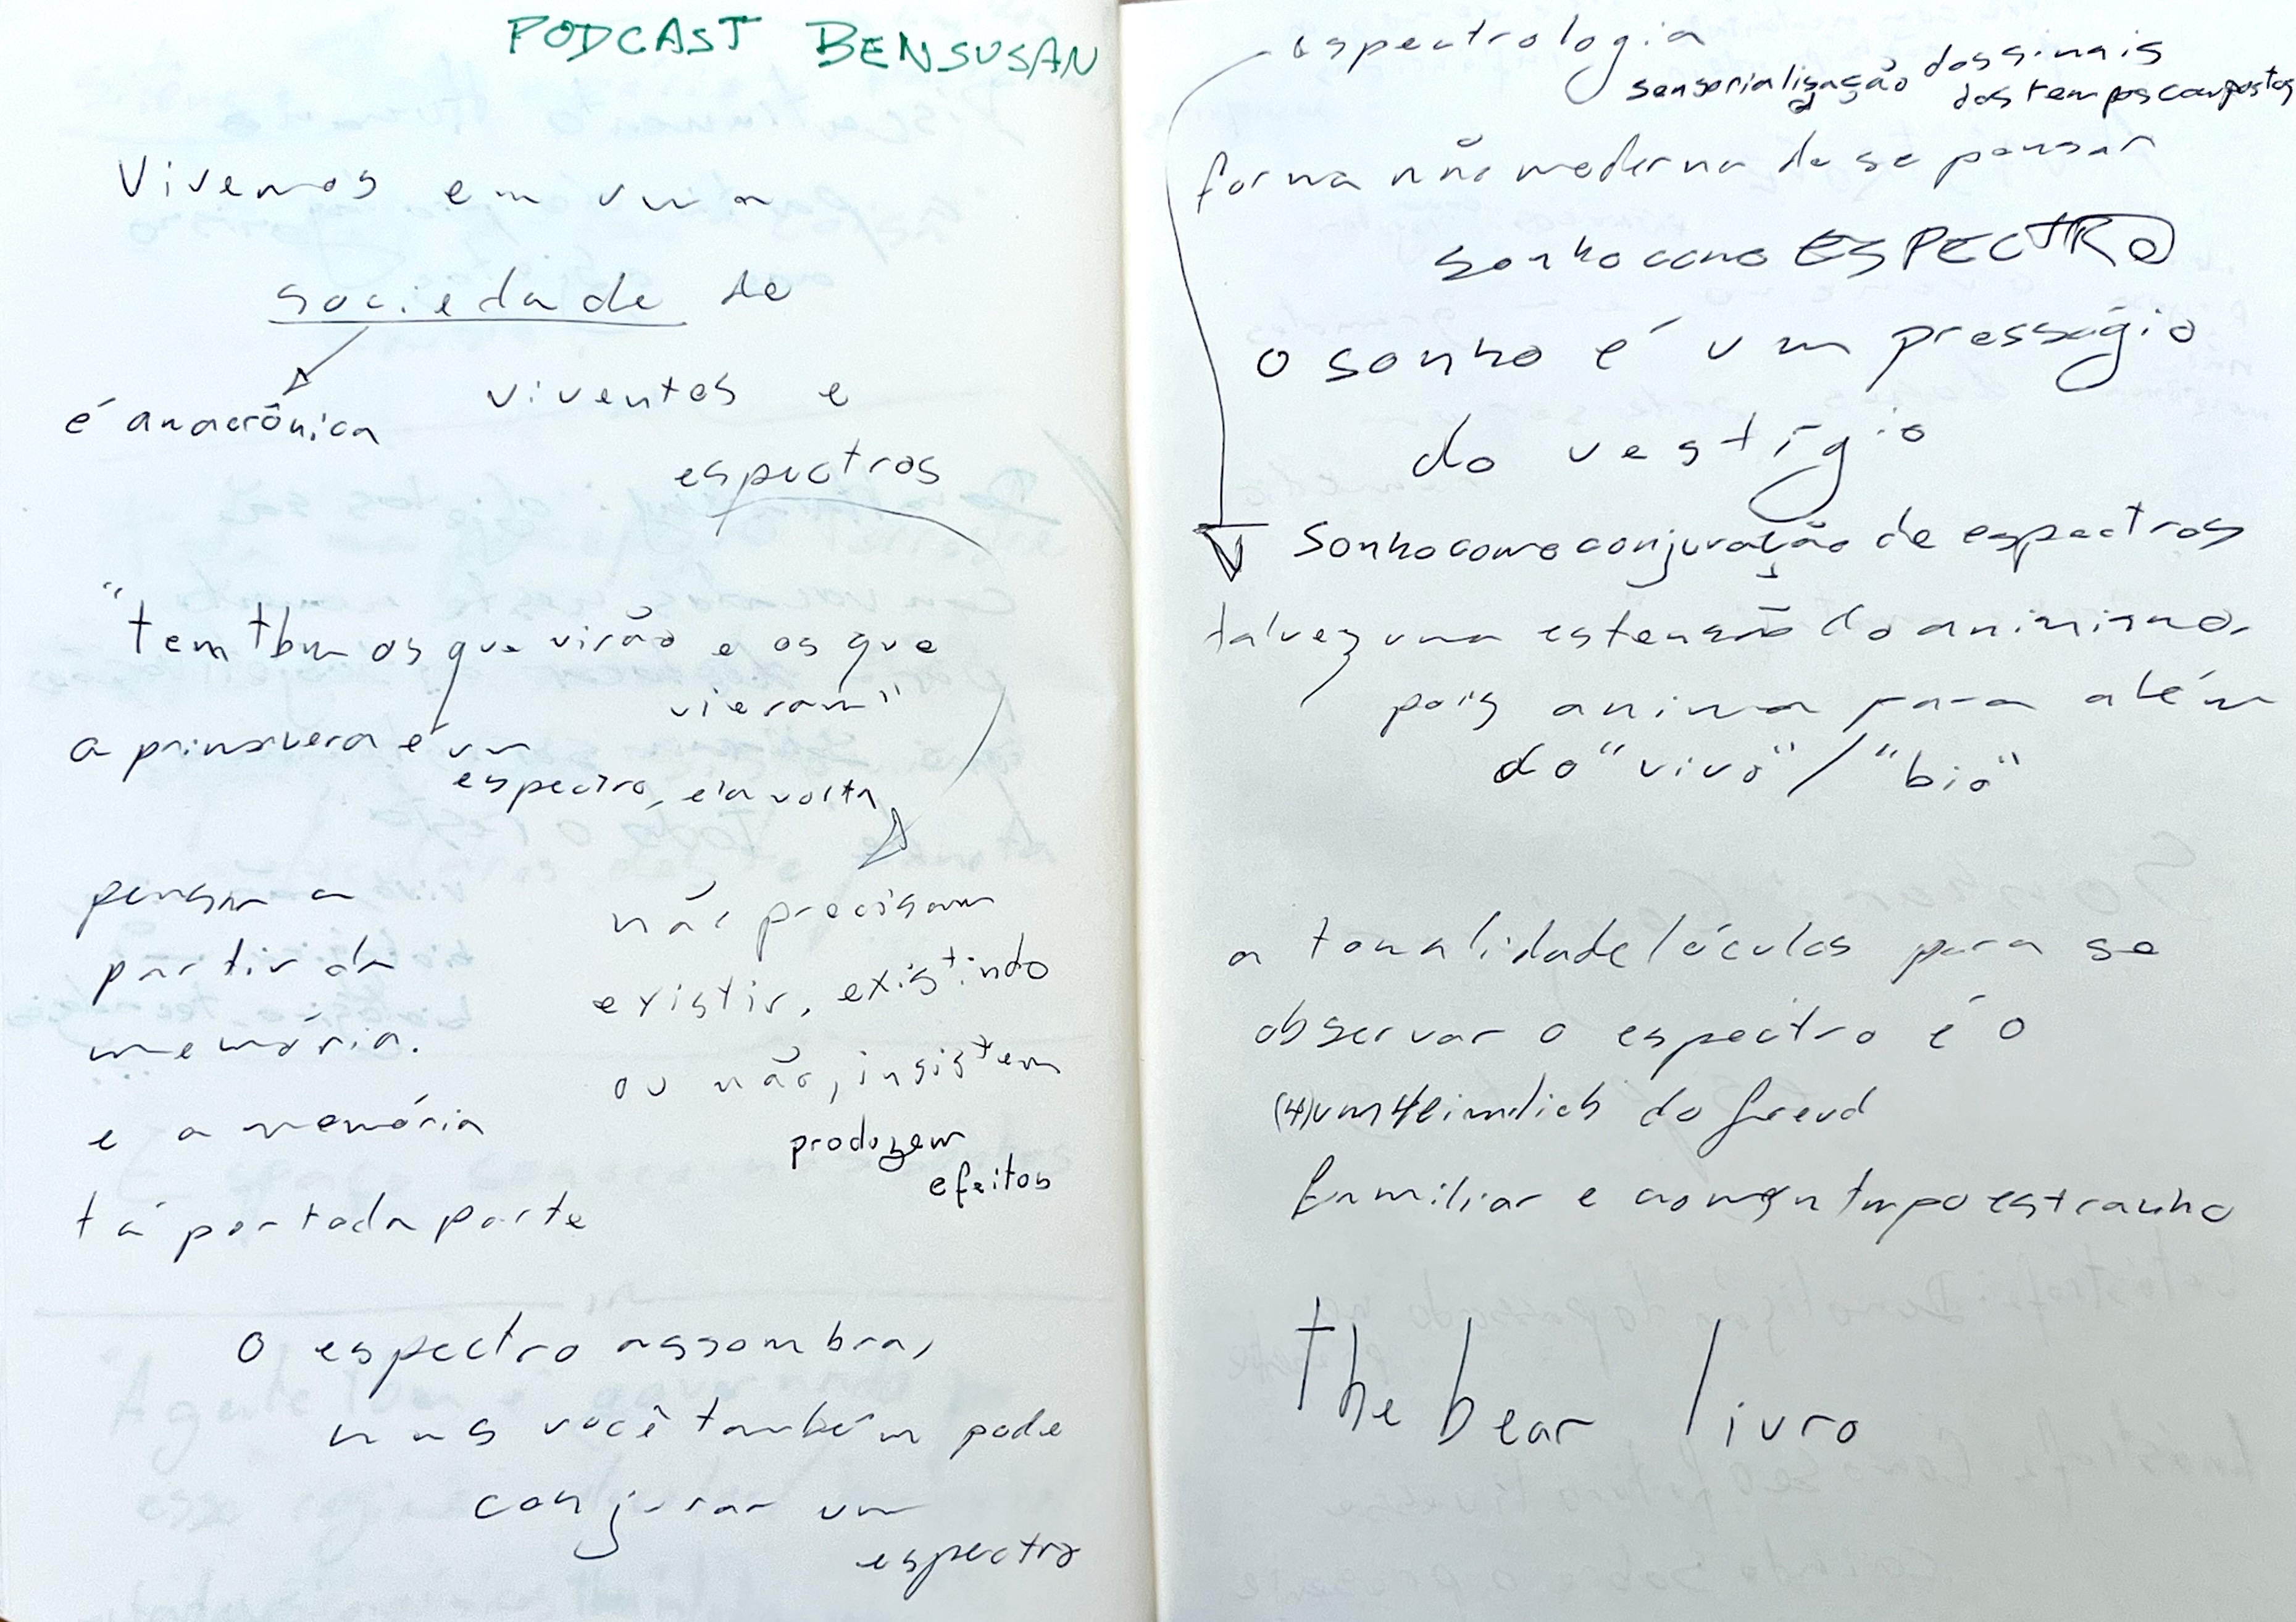 PODCAST BENSUSAN
Vivemos em uma
sociedade de
viventes e
é anacrônica
espectros
"tem tbm os que virão e os que
vieram"
a primavera é um
espectro, ela volta
pensar a
partir da
memória.
e a memória
tá por toda parte
não precisam
existir, existindo
ou não, insistem
produzem
efeitos
O espectro assombra,
mas você também pode
conjurar um
espectro
espectrologia
sensorialização dos sinais
dos tempos compostos
forma não moderna de se pensar
sonho como ESPECTRO
o sonho é um presságio
do vestígio
Sonho como conjuração de espectros
talvez uma estensão do animismo,
pois anima para além
do "vivo" / "bio"
a tonalidade/óculos para se
observar o espectro é o
do freud
familiar e ao msm tmpo estranho
the bear livro